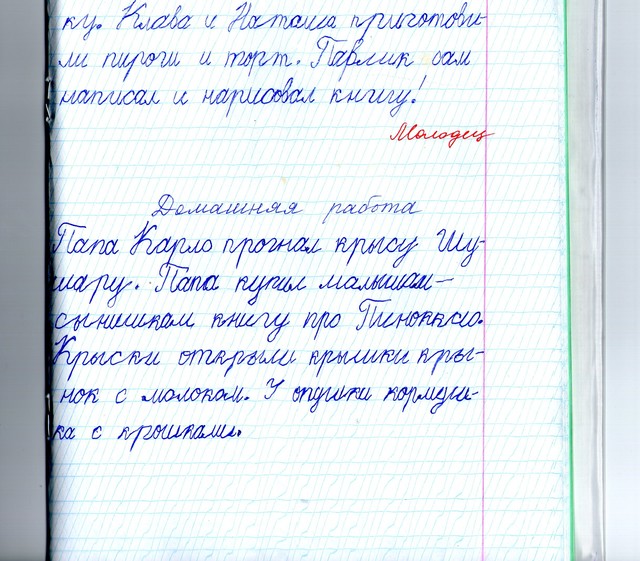 ку. Клава и Наташа приготови-
ли пироги и торт. Павлик сам
написал и нарисовал книгу!
Молодец
Домашняя работа
Папа Карло прогнал крысу Шу-
шару. Папа купил малышам-
сынишкам книгу про Пиноккио.
Крыски открыли крышки кры-
нок с молоком. У опушки кормуш-
ка с крошками.